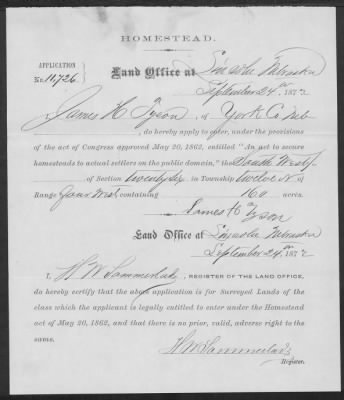 HOMESTEAD.
APPLICATION
No. 11,726
Land Office at Lincoln Nebraska
September 24th 1872
James H Tyson, of York Co Neb
do hereby apply to enter, under the provisions
of the act of Congress approved May 20, 1862, entitled "An act to secure
homesteads to actual settlers on the public domain," the South West 1/4
of Section twenty six in Township twelve N of
Range Four West containing 160 acres.
James H Tyson
Land Office at Lincoln Nebraska
September 24th 1872
I, H W Sommerlad, REGISTER OF THE LAND OFFICE,
do hereby certify that the above application is for Surveyed Lands of the
class which the applicant is legally entitled to enter under the Homestead
act of May 20, 1862, and that there is no prior, valid, adverse right to the
same.
H W Sommerlad
Register.